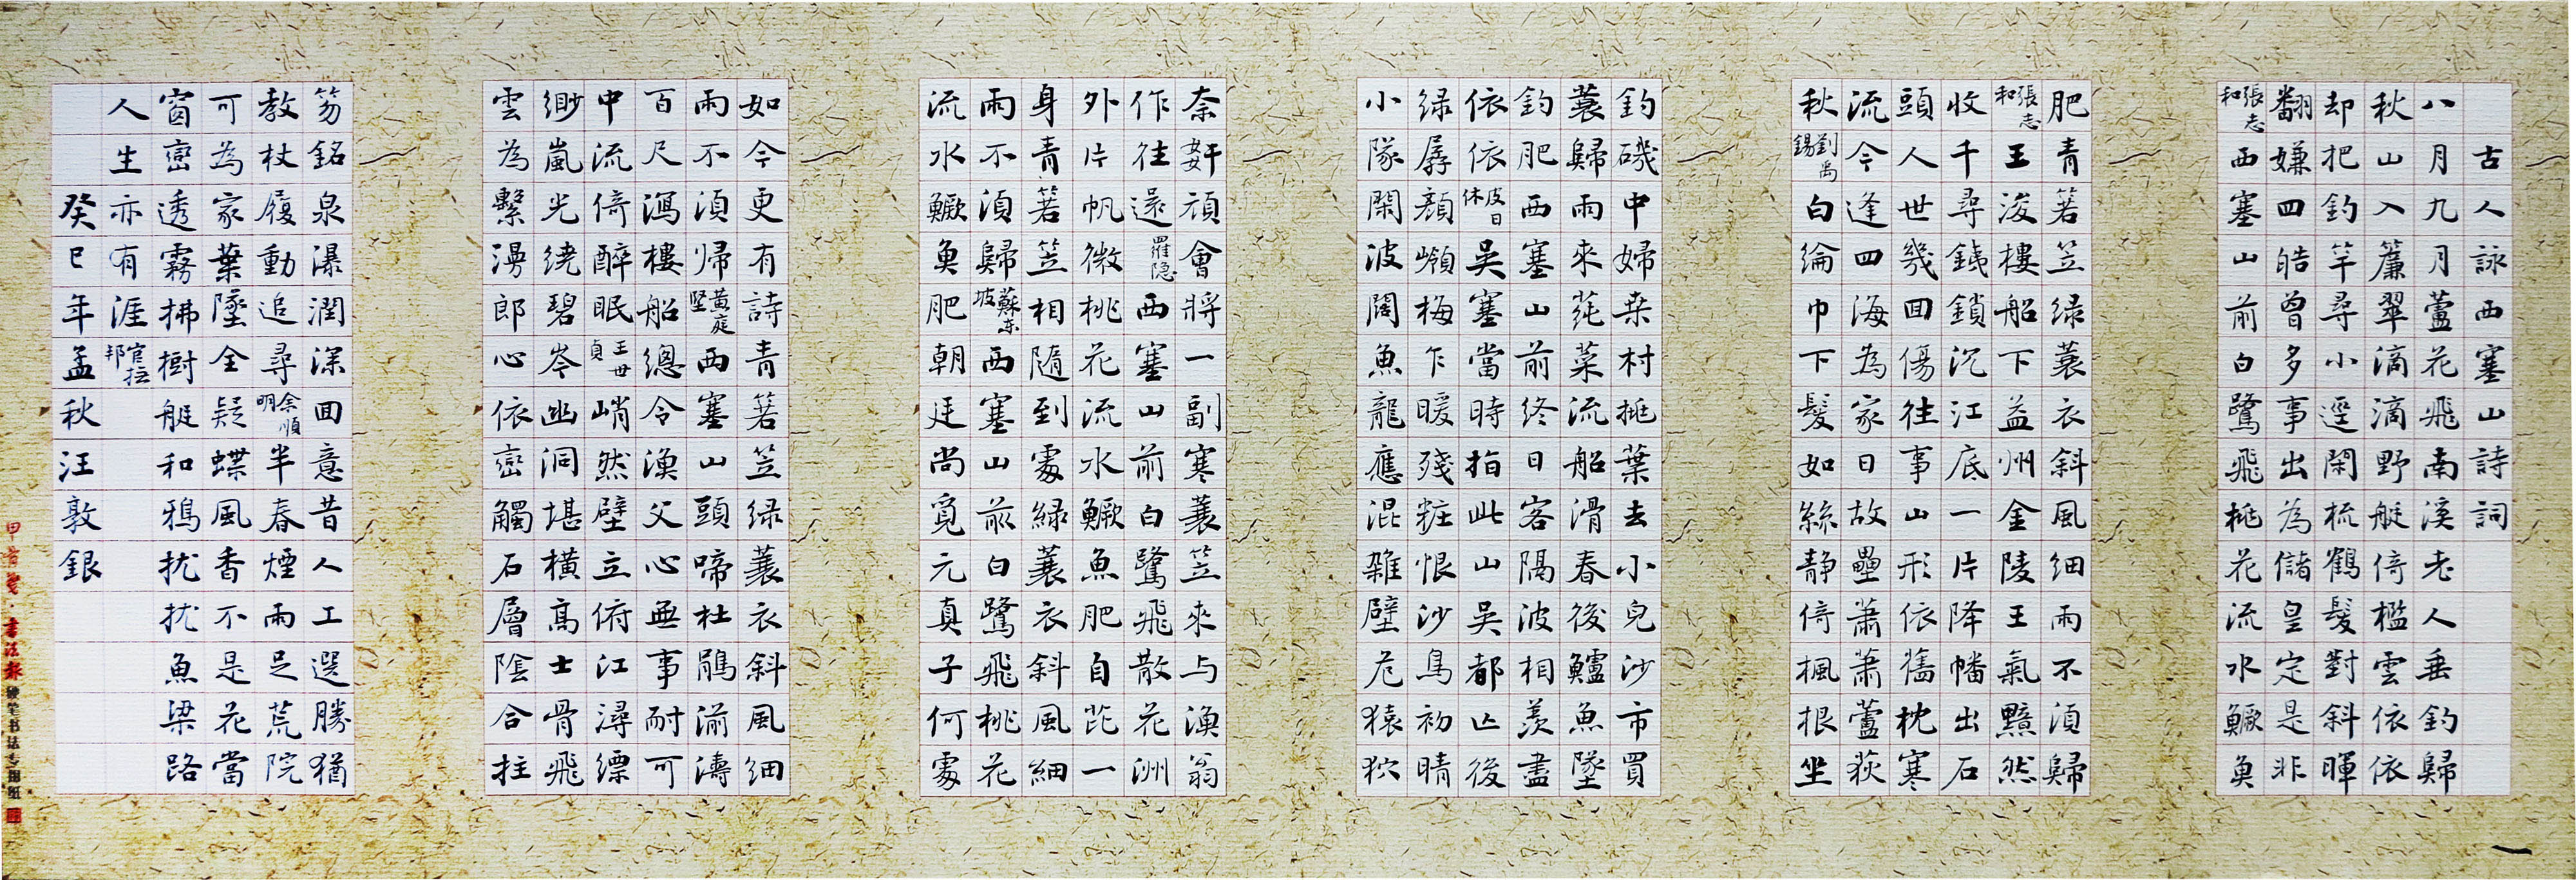 古人詠西塞山詩詞
八月九月蘆花飛南溪老人垂釣歸
秋山入簾翠滴滴野艇倚檻雲依依
却把釣竿尋小逕閑梳鶴髮對斜暉
翻嫌四皓曾多事出為儲皇定是非
張志和西塞山前白鷺飛桃花流水鱖魚
肥青箬笠绿蓑衣斜風細雨不須歸
張志和王濬樓船下益州金陵王氣黯然
收千尋銕鎖沉江底一片降幡出石
頭人世幾回傷往事山形依舊枕寒
流今逢四海為家日故壘蕭蕭蘆荻
秋劉禹錫白綸巾下髮如絲静倚楓根坐
釣磯中婦桒村挑葉去小兒沙市買
蓑歸雨來蒓菜流船滑春後鱸魚墜
釣肥西塞山前終日客隔波相羡盡
依依皮日休吳塞當時指此山吳都亡後
绿孱顏嶺梅乍暖殘粧恨沙鳥初晴
小隊閑波闊魚龍應混雜壁危猿狖
奈姧頑會將一副寒蓑笠來与漁翁
作往還羅隐西塞山前白鷺飛散花洲
外片帆微桃花流水鱖魚肥自芘一
身青箬笠相隨到處緑蓑衣斜風細
雨不須歸蘇东坡西塞山前白鷺飛桃花
流水鱖魚肥朝廷尚覓元真子何處
如今更有詩青箬笠绿蓑衣斜風細
雨不須帰黃庭坚西塞山頭啼杜鵑湔濤
百尺瀉樓船總令漁父心無事耐可
中流倚醉眠王世貞峭然壁立俯江潯縹
緲嵐光绕碧岑幽洞堪橫高士骨飛
雲為繫漫郎心依巒觸石層陰合拄
笏銘泉瀑潤深回意昔人工選勝猶
教杖履動追尋余順明半春煙雨足荒院
可為家葉墜全疑蝶風香不是花當
窗巒透霧拂樹艇和鴉扰扰魚梁路
人生亦有涯官撫邦
癸巳年孟秋汪敦銀